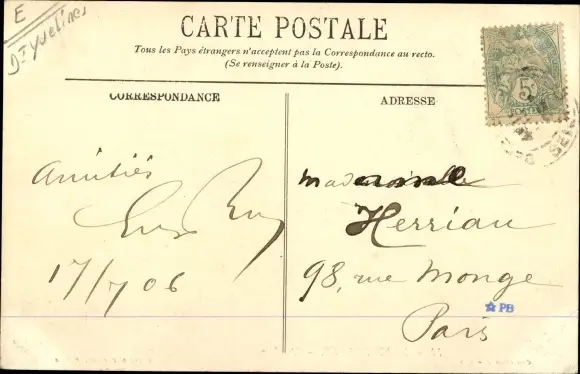 E
Dt Yvelines
CARTE POSTALE
Tous les Pays étrangers n'acceptent pas la Correspondance au recto.
(Se renseigner à la Poste).
5c
POSTES
CORRESPONDANCE
ADRESSE
Amitiés
17/7 06
Mademoiselle
Herriau
98, rue Monge
Paris
PB